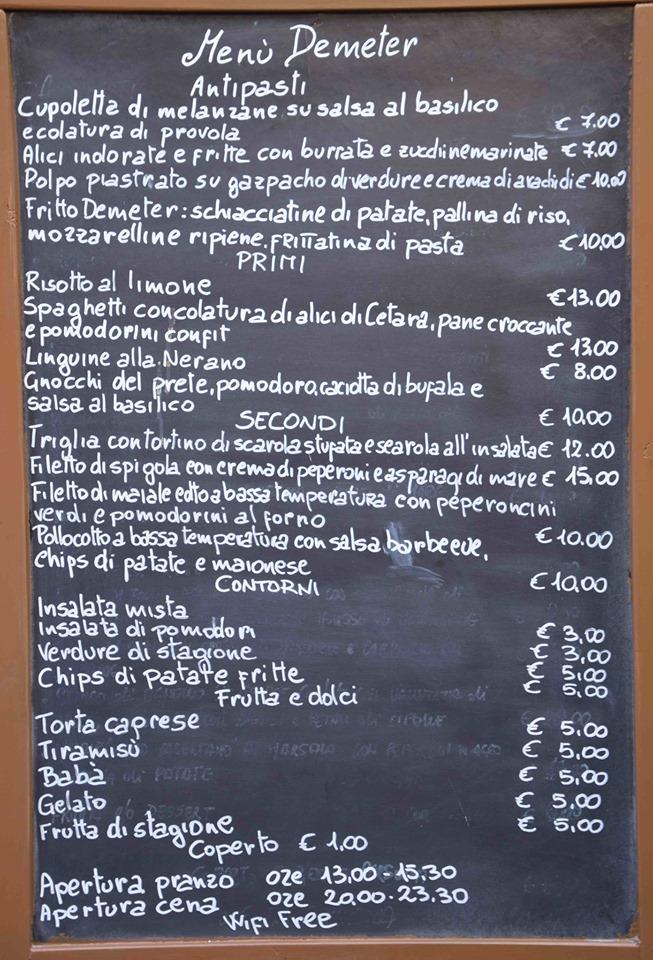 Menù Demeter
Antipasti
Cupoletta di melanzane su salsa al basilico
e colatura di provola € 7.00
Alici indorate e fritte con burrata e zucchine marinate € 7.00
Polpo piastrato su gazpacho di verdure e crema di arachidi € 10.00
Fritto Demeter: schiacciatine di patate, pallina di riso,
mozzarelline ripiene, frittatina di pasta € 10,00
PRIMI
Risotto al limone €13.00
Spaghetti con colatura di alici di Cetara, pane croccante
e pomodorini confit € 13.00
Linguine alla Nerano € 8.00
Gnocchi del prete, pomodoro, caciotta di bufala e
salsa al basilico € 10.00
SECONDI
Triglia con tortino di scarola stufata e scarola all'insalata € 12.00
Filetto di spigola con crema di peperoni e asparagi di mare € 15,00
Filetto di maiale cotto a bassa temperatura con peperoncini
verdi e pomodorini al forno € 10.00
Pollo cotto a bassa temperatura con salsa barbecue,
chips di patate e maionese € 10,00
CONTORNI
Insalata mista € 3,00
Insalata di pomodori € 3,00
Verdure di stagione € 5.00
Chips di patate fritte € 5,00
Frutta e dolci
Torta caprese € 5.00
Tiramisù € 5.00
Babà € 5,00
Gelato € 5,00
Frutta di stagione € 5,00
Coperto € 1,00
Apertura pranzo ore 13,00 - 15,30
Apertura cena ore 20,00 - 23,30
Wifi Free